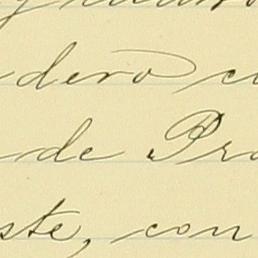 dero c
de Pro
ste, con